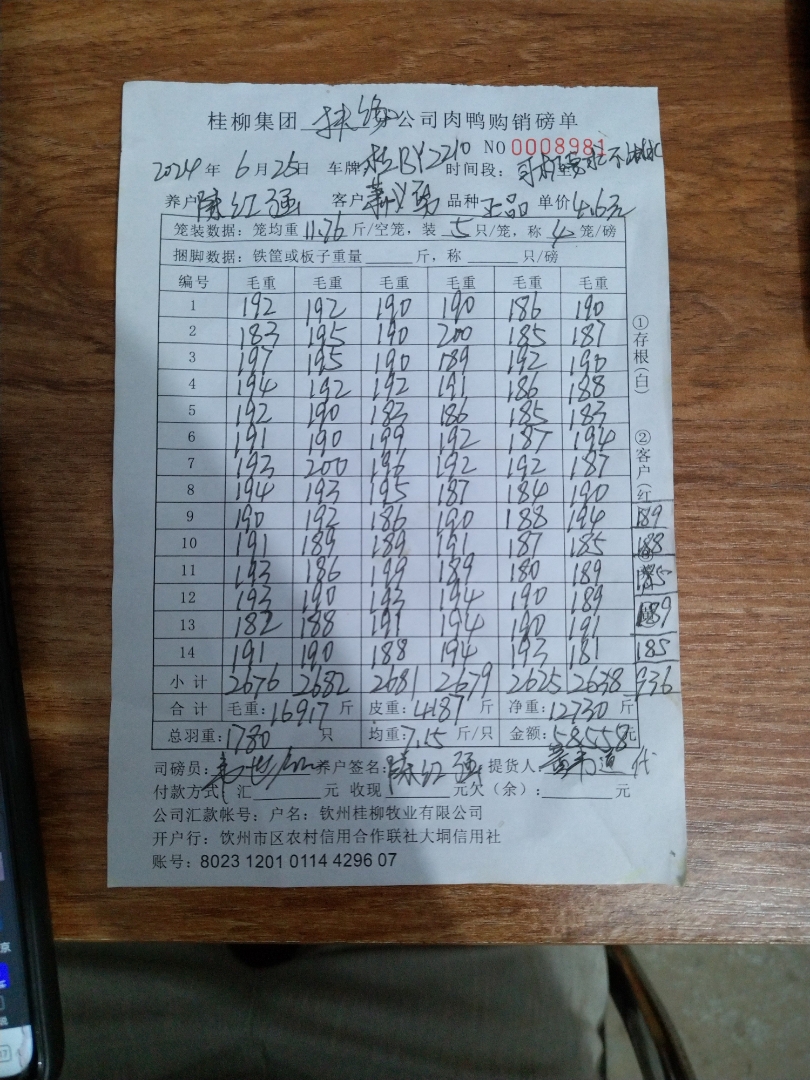 桂柳集团 公司肉鸭购销磅单
NO 0008981
2024年 6月25日 车牌 桂BY2210 时间段: 司机要求不淋水
养户 陈红强 客户 品种 正品 单价 4.6元
笼装数据: 笼均重 11.76 斤/空笼, 装 5 只/笼, 称 4 笼/磅
捆脚数据: 铁筐或板子重量 斤, 称 只/磅
编号 毛重 毛重 毛重 毛重 毛重 毛重
1 192 192 190 190 186 190
2 183 195 190 200 185 187
3 197 195 190 189 192 190
4 194 192 192 191 186 188
5 192 190 183 186 185 183
6 191 190 199 192 187 194
7 193 200 196 192 192 187
8 194 193 195 187 184 190
9 190 192 186 190 188 194 189
10 191 189 189 191 187 185 188
11 193 186 199 189 180 189 185
12 193 190 193 194 190 189
13 182 188 191 194 190 191 189
14 191 190 188 194 193 181 185
小计 2676 2682 2681 2679 2625 2638 936
合计 毛重: 16917 斤 皮重: 4187 斤 净重: 12730 斤
总羽重: 1780 只 均重: 7.15 斤/只 金额: 58558元
司磅员: 养户签名: 陈红强 提货人: 代
付款方式( 汇 元 收现 元欠(余): 元
公司汇款帐号: 户名: 钦州桂柳牧业有限公司
开户行: 钦州市区农村信用合作联社大垌信用社
账号: 8023 1201 0114 4296 07
①存根(白)
②客户(红